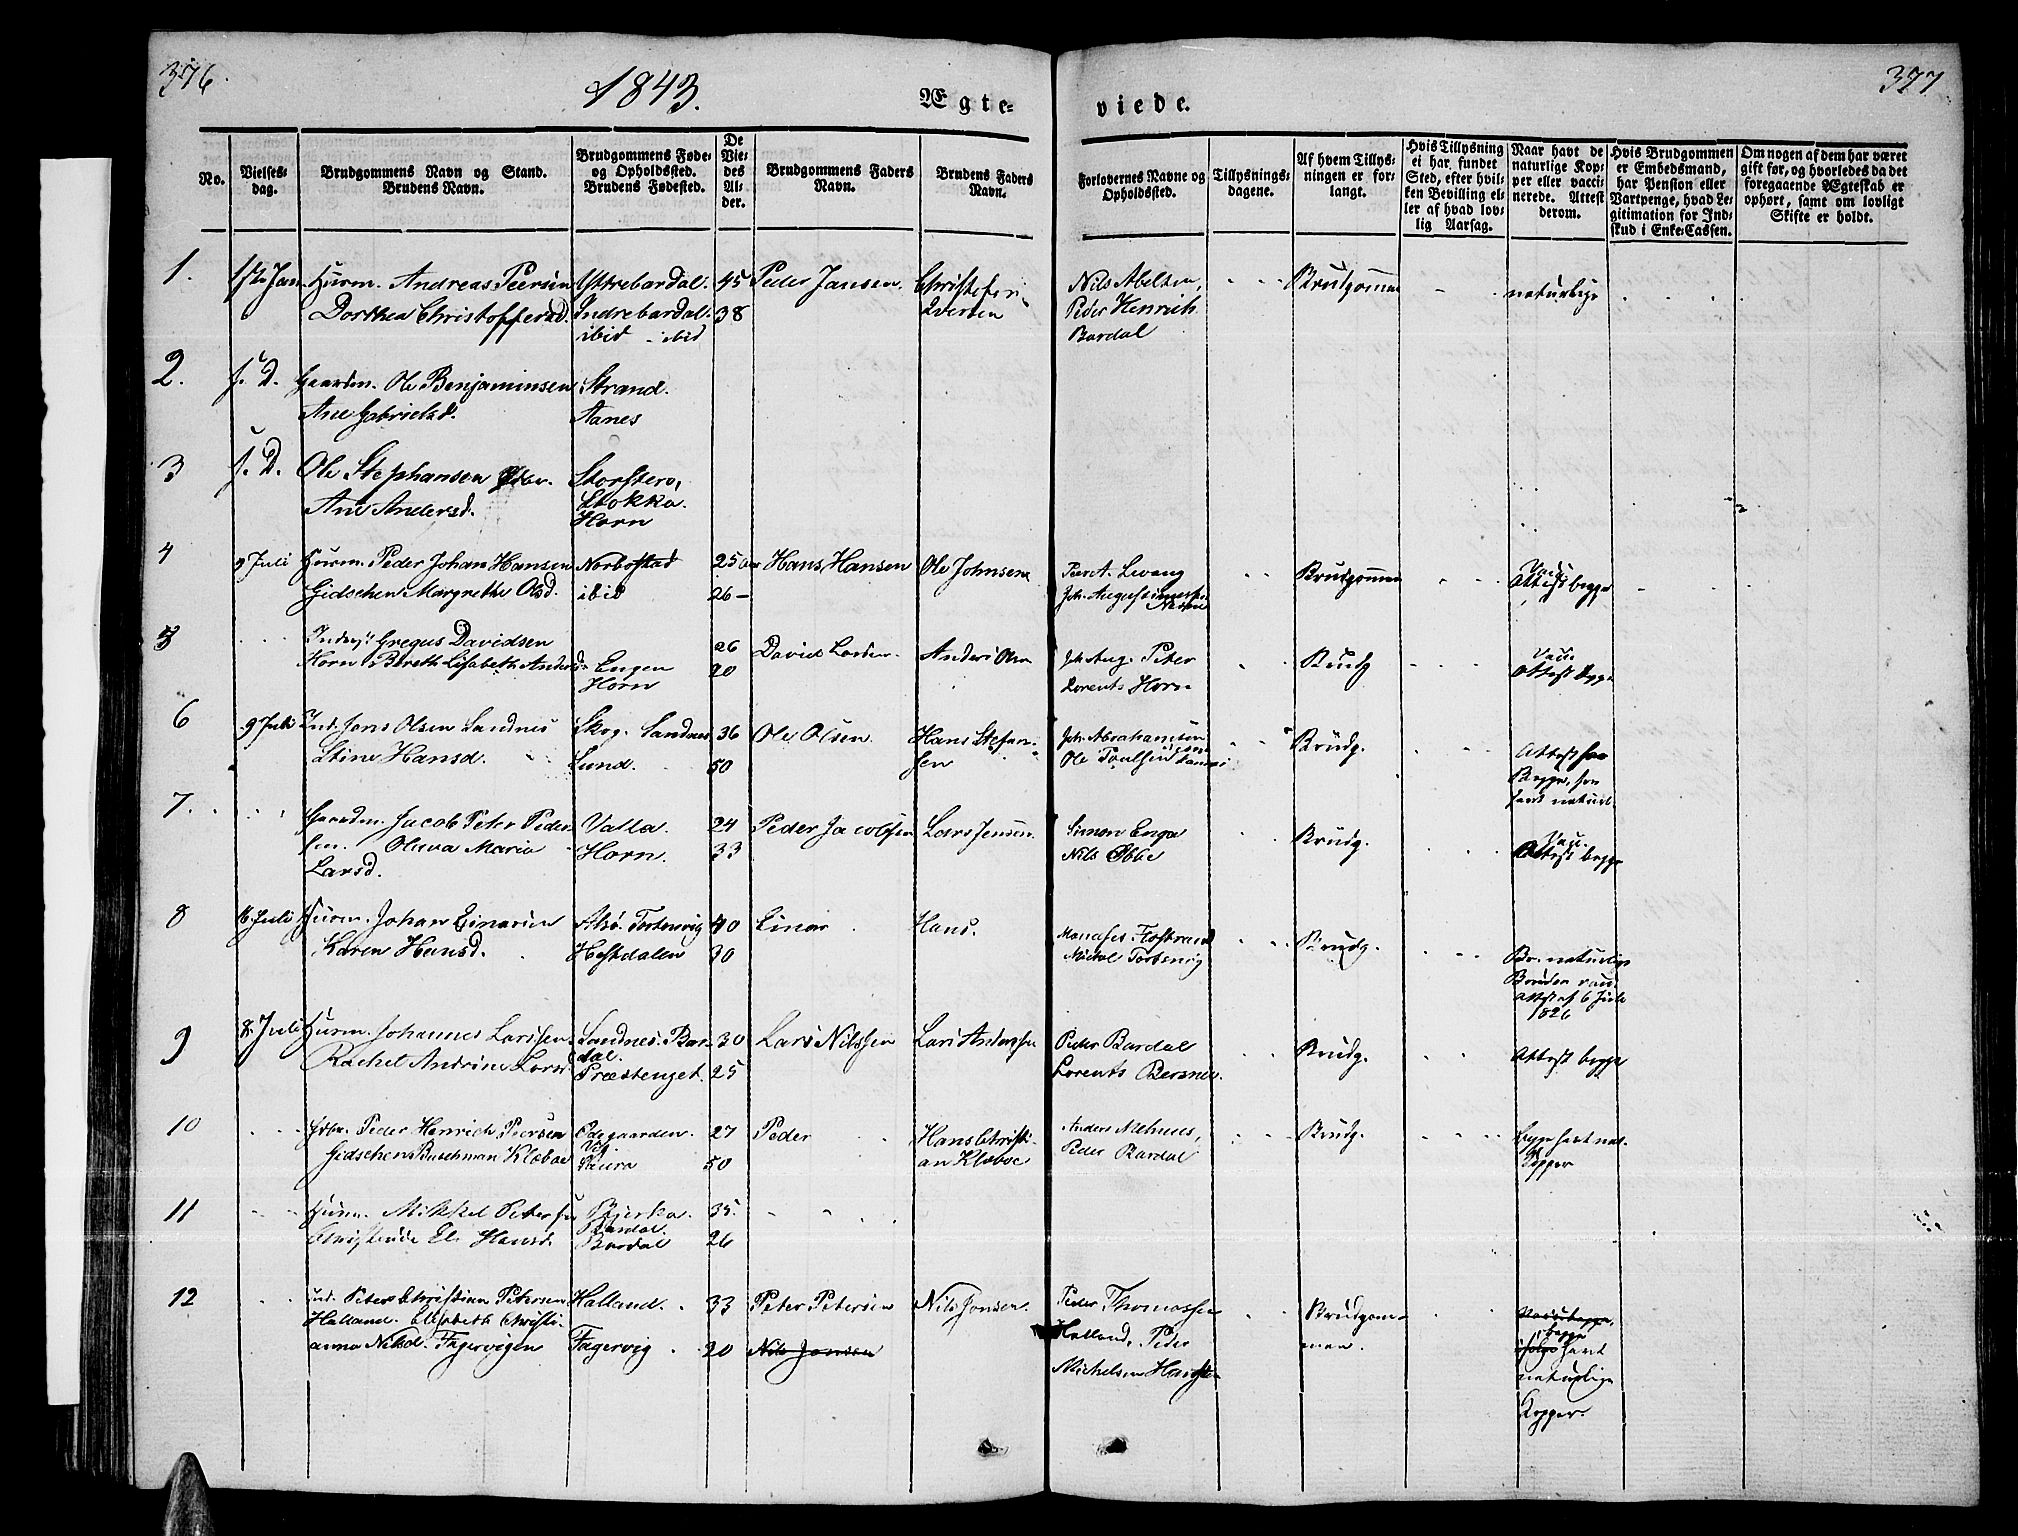 376.
1843.
Ægte=
viede.
377
No.
Vielses=
dag.
Brudgommens Navn og Stand.
Brudens Navn.
Brudgommens Føde=
og Opholdssted.
Brudens Fødested.
De
Vie=
des
Al=
der.
Brudgommens Faders
Navn.
Brudens Faders
Navn.
Forlovernes Navne og
Opholdssted.
Tillysnings=
dagene.
Af hvem Tillys=
ningen er for=
langt.
Hvis Tillysning
ei har fundet
Sted, efter hvil=
ken Bevilling el=
ler af hvad lov=
lig Aarsag.
Naar havt de
naturlige Kop=
per eller vacci=
nerede. Attest
derom.
Hvis Brudgommen
er Embedsmand,
har Pension eller
Vartpenge, hvad Le=
gitimation for Ind=
skud i Enke=Cassen.
Om nogen af dem har været
gift før, og hvorledes da det
foregaaende Ægteskab er
ophørt, samt om lovligt
Skifte er holdt.
1.
Jan
Huusm. Andreas Peersen
Dorthea Christoffersd.
Yttrebardal.
Indrebardal.
ibid - ibid
45
38
Peder Jansen.
Christofer
Iversen
Nils Abelsen,
Peder Henrich
Bardal
Brudgommen
naturlige
2.
s. D.
Gaardm. Ole Benjaminsen
Ane Gabrielsd.
Strand.
Aanes
3
s. D.
Ole Stephansen
Ane Andersd.
Storsteen,
Stokka.
Horn
4
9 Juli
Huusm. Peder Johan Hansen
Gidschen Margrethe Olsd.
Norbostad
ibid
25
26 -
Hans Hansen
Ole Johnsen
Peer A. Levang
Joh. August
Brudgommen
Vacc.
Attest begge
5
Inders. Gregus Davidsen
Horn Bereth Lisabeth Andersd.
Engen
Horn
26
20
David
Anders Olsen
Joh. Aug. Peter
Lorents Horn
Brudg
Vacc.
Attest begge
6
9 Juli
Ind. Jens Olsen Sandnes
Stine Hansd.
Skog. Sandnes
Lund.
36
50
Ole Olsen.
Hans Stefan-
sen
Joh. Abrahamsen
Ole Paulsen
Brudg.
Attest for
Begge, som
havt naturl.
7.
Gaardm. Jacob Peter Peder-
sen. Oluva Maria
Larsd.
Valla.
Horn.
24
33
Peder Jacobsen
Lars Jensen.
Simon Enga
Nils Ebbe
Brudg.
Vacc.
Attest begge
8
16 Juli
Huusm. Johan Einarsen
Karen Hansd.
Alsø. Tortenvig
Hestdalen
40
30
Einar
Hans.
Manases Flostrand
Mickel Tortenvig
Brudg.
Br. naturlige
Bruden vacc.
attest af 6 Juli
1826
9
8. Juli
Huusm. Johannes Larssen
Rachel Andrine Larsd.
Sandnes. Bar-
dal.
Præstenget.
30
25
Lars Nilssen
Lars Anderssen
Peder Bardal
Lorents Bersnes.
Brudg.
Attest begge
10
Peder Henrich Peersen
Gidschen Buschman Klæboe
Odegaarden.
Saura
27
50
Peder
Hans Christi-
an Klæboe
Anders Nehuus,
Peder Bardal
Brudg.
begge havt nat.
Kopper
11
Huusm. Mikkel Petersen
Hansd.
Bjerka.
Bardal
Bardal
35.
26
12
Ind. Peter Christian Petersen
Halland. Elisabeth Christi-
anna Nilsd. Fagervigen
Halland.
Fagervig
33
20
Peter Petersen
Nils Jonsen
Nils Jonsen.
Peder Thomassen
Halland, Peder
Michelsen
Brudgom-
men.
begge
havt
naturlige
Kopper.